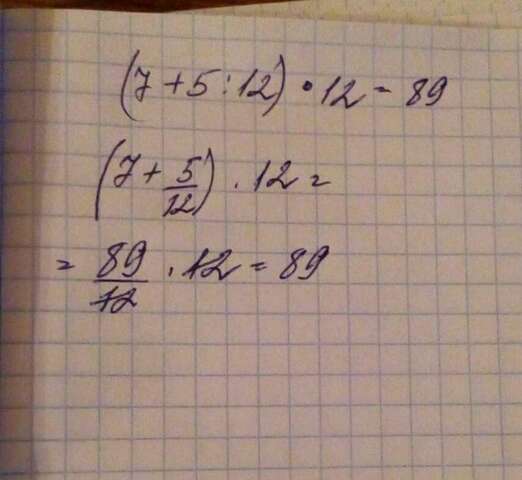 (7+5:12)•12=89
(7+5/12)·12=
=89/12·12=89